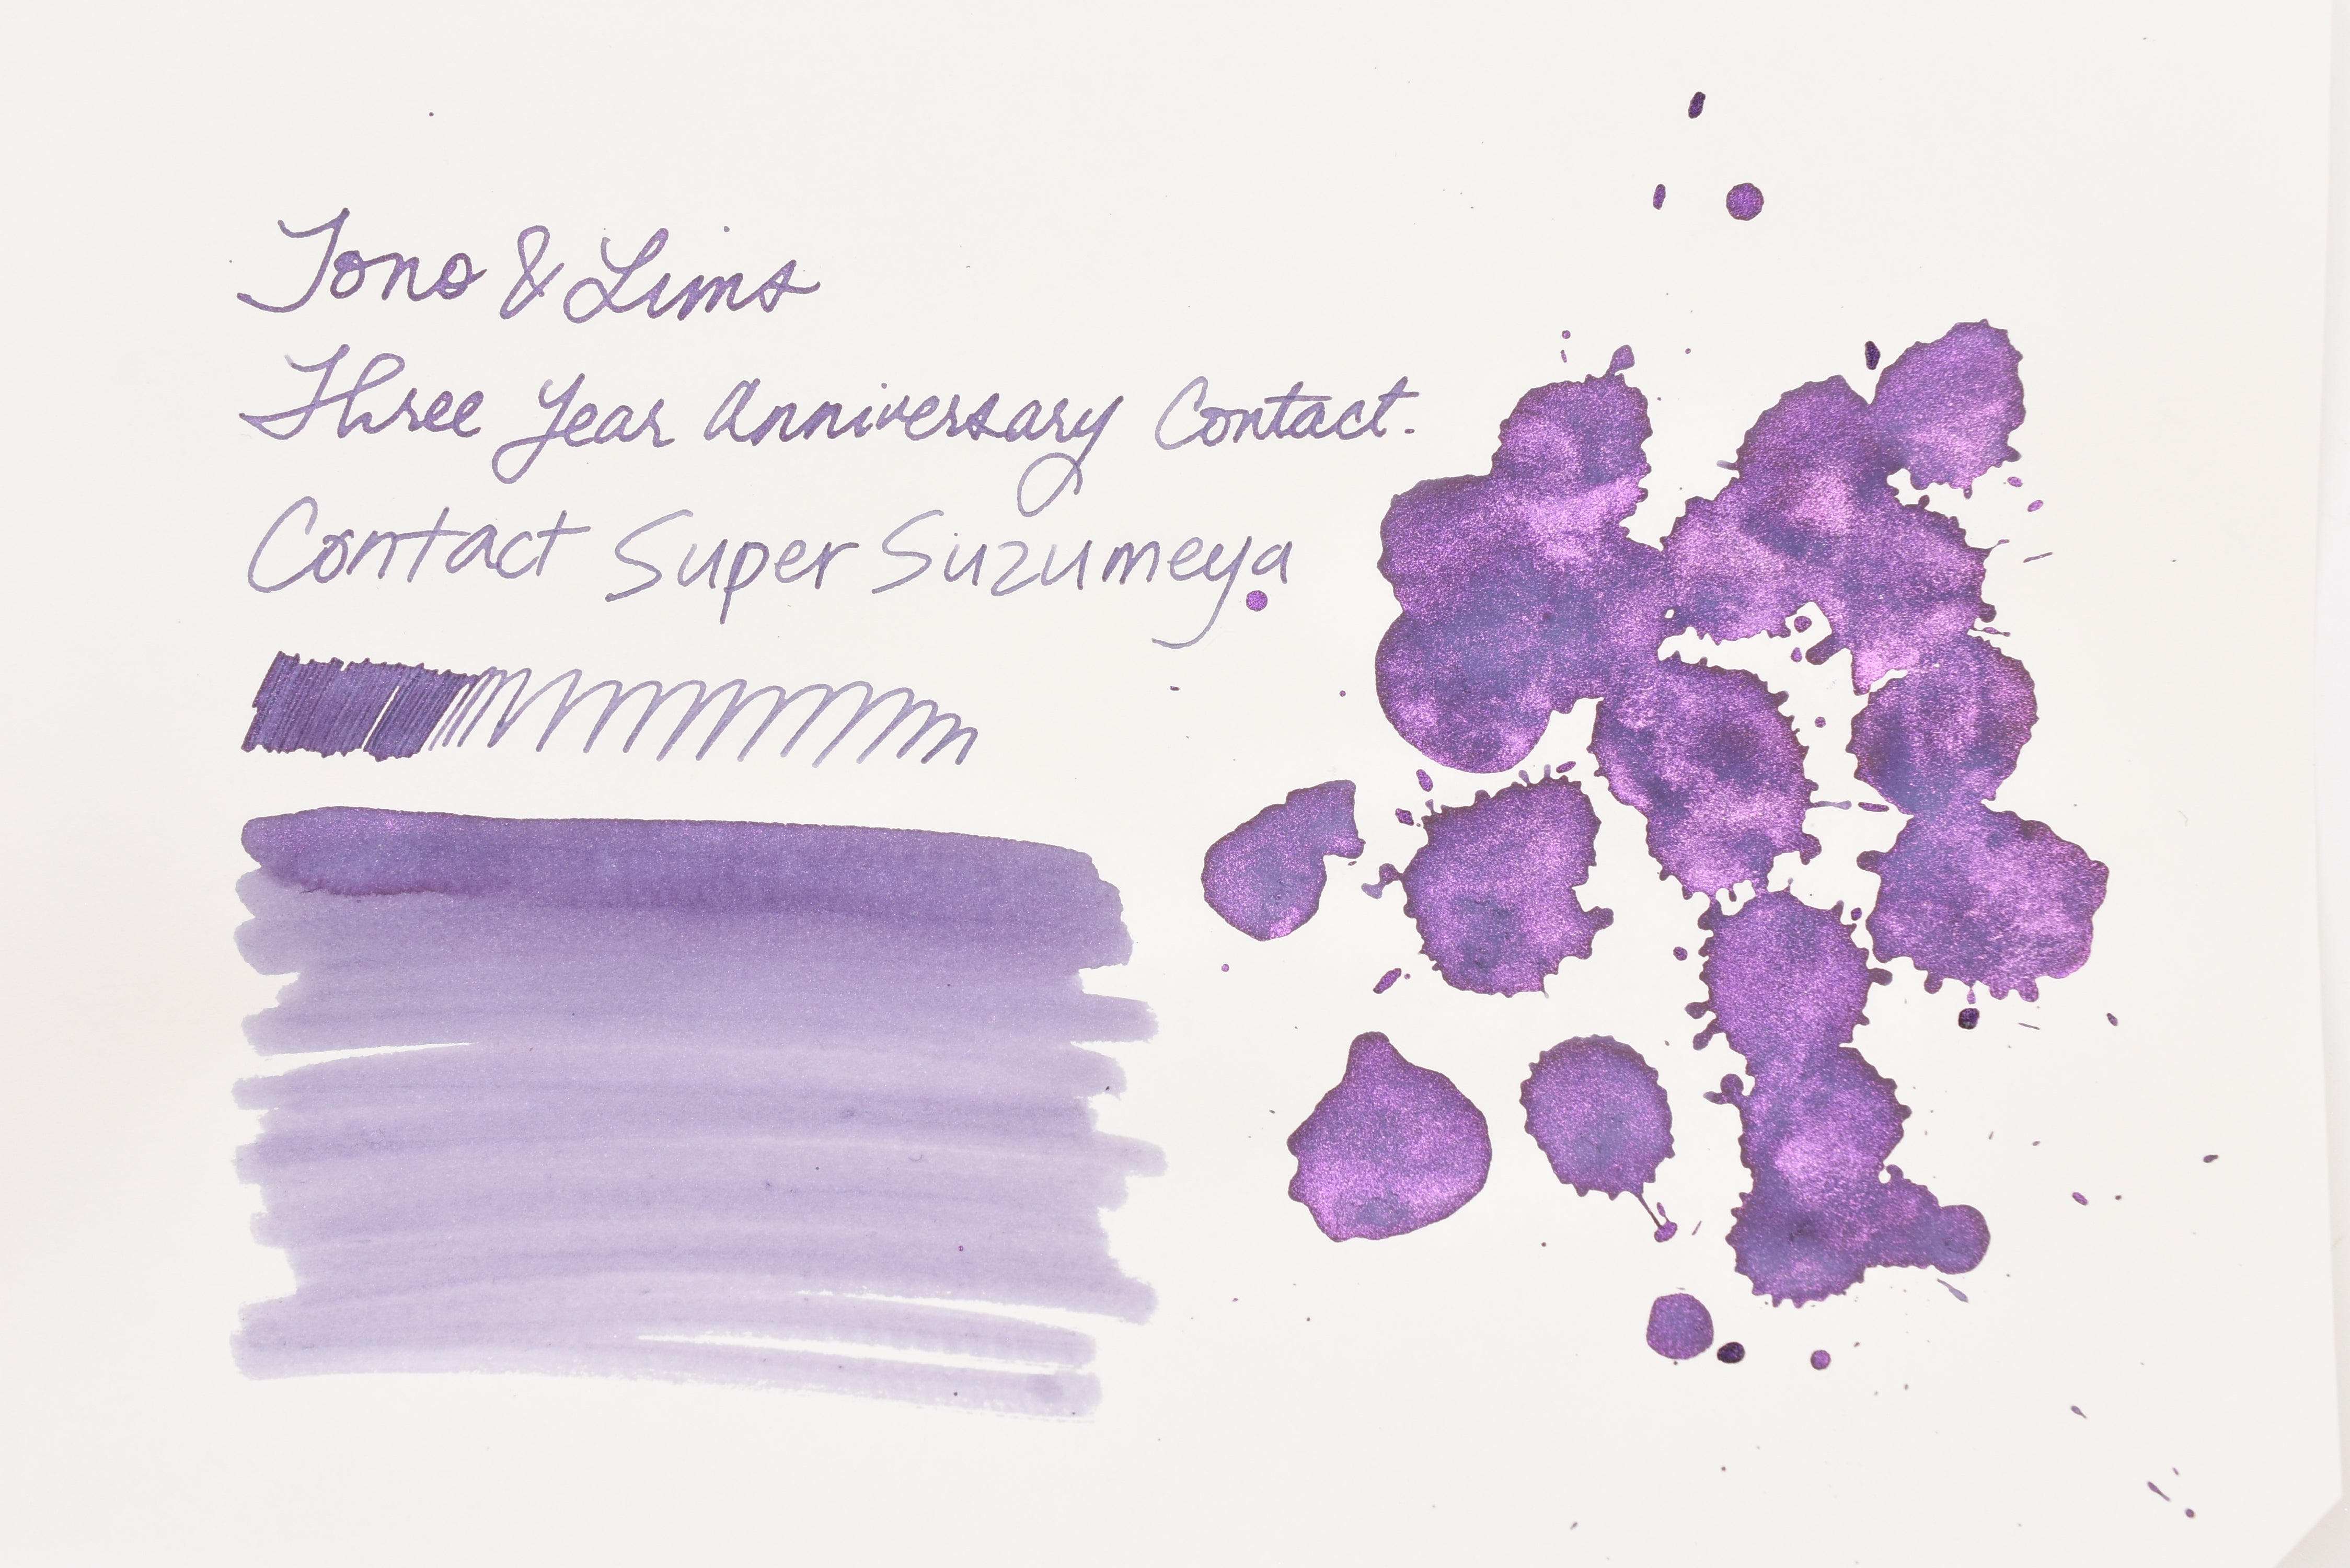 Tono & Lims
Three Year Anniversary Contact.
Contact Super Suzumeya